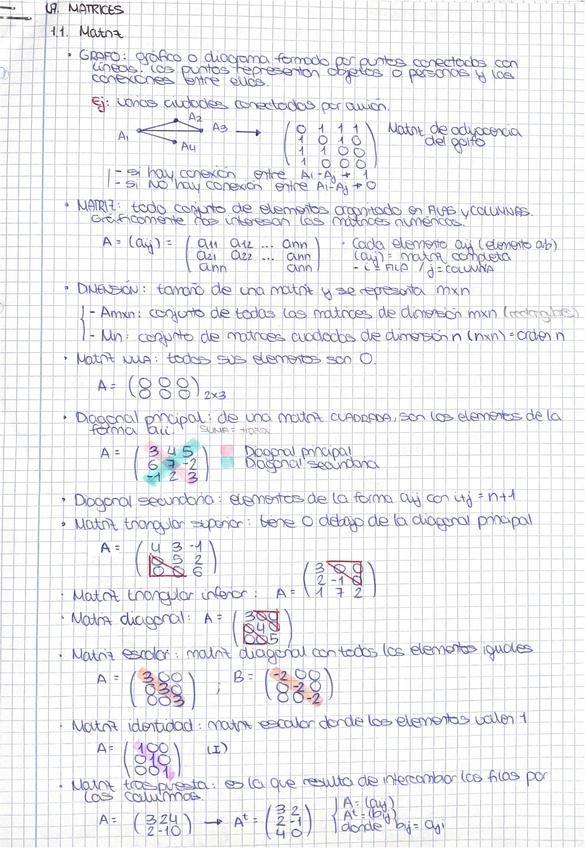 U9. MATRICES
1.1. Matriz
• GRAFO: gráfico o diagrama formado por puntos conectados con
líneas. Los puntos representan objetos o personas y las
conexiones entre ellos.
Ej: varias ciudades conectadas por avión.
A1 A2 A3 A4 → (0 1 1 1 Matriz de adyacencia
1 0 1 0 del grafo
1 1 0 0
1 0 0 0)
- si hay conexión entre Ai-Aj → 1
- si NO hay conexión entre Ai-Aj → 0
• MATRIZ: todo conjunto de elementos organizado en FILAS y COLUMNAS.
Gráficamente nos interesan las matrices numéricas.
A = (aij) = (a11 a12 ... ann · Cada elemento aij (elemento ab)
a21 a22 ... ann (aij) = matriz completa
ann ann) - i = FILA / j = COLUMNA
• DIMENSIÓN: tamaño de una matriz y se representa mxn
- Amxn: conjunto de todas las matrices de dimensión mxn (rectangulares)
- Mn: conjunto de matrices cuadradas de dimensión n (nxn) = orden n
• Matriz NULA: todos sus elementos son 0.
A = (0 0 0
0 0 0) 2x3
• Diagonal principal: de una matriz CUADRADA, son los elementos de la
forma aii. SUMA = traza
A = (3 4 5 Diagonal principal
6 7 -2 Diagonal secundaria
-1 2 3)
• Diagonal secundaria: elementos de la forma aij con i+j = n+1
• Matriz triangular superior: tiene 0 debajo de la diagonal principal
A = (4 3 -1
0 5 2
0 0 6)
• Matriz triangular inferior: A = (3 0 0
2 -1 0
1 7 2)
• Matriz diagonal: A = (3 0 0
0 4 0
0 0 5)
• Matriz escalar: matriz diagonal con todos los elementos iguales
A = (3 0 0 ; B = (-2 0 0
0 3 0 0 -2 0
0 0 3) 0 0 -2)
• Matriz identidad: matriz escalar donde los elementos valen 1
A = (1 0 0 (I)
0 1 0
0 0 1)
• Matriz traspuesta: es la que resulta de intercambiar las filas por
las columnas.
A = (3 2 4 → At = (3 2 A = (aij)
2 -1 0) 2 -1 At = (bij)
4 0) donde bij = aji